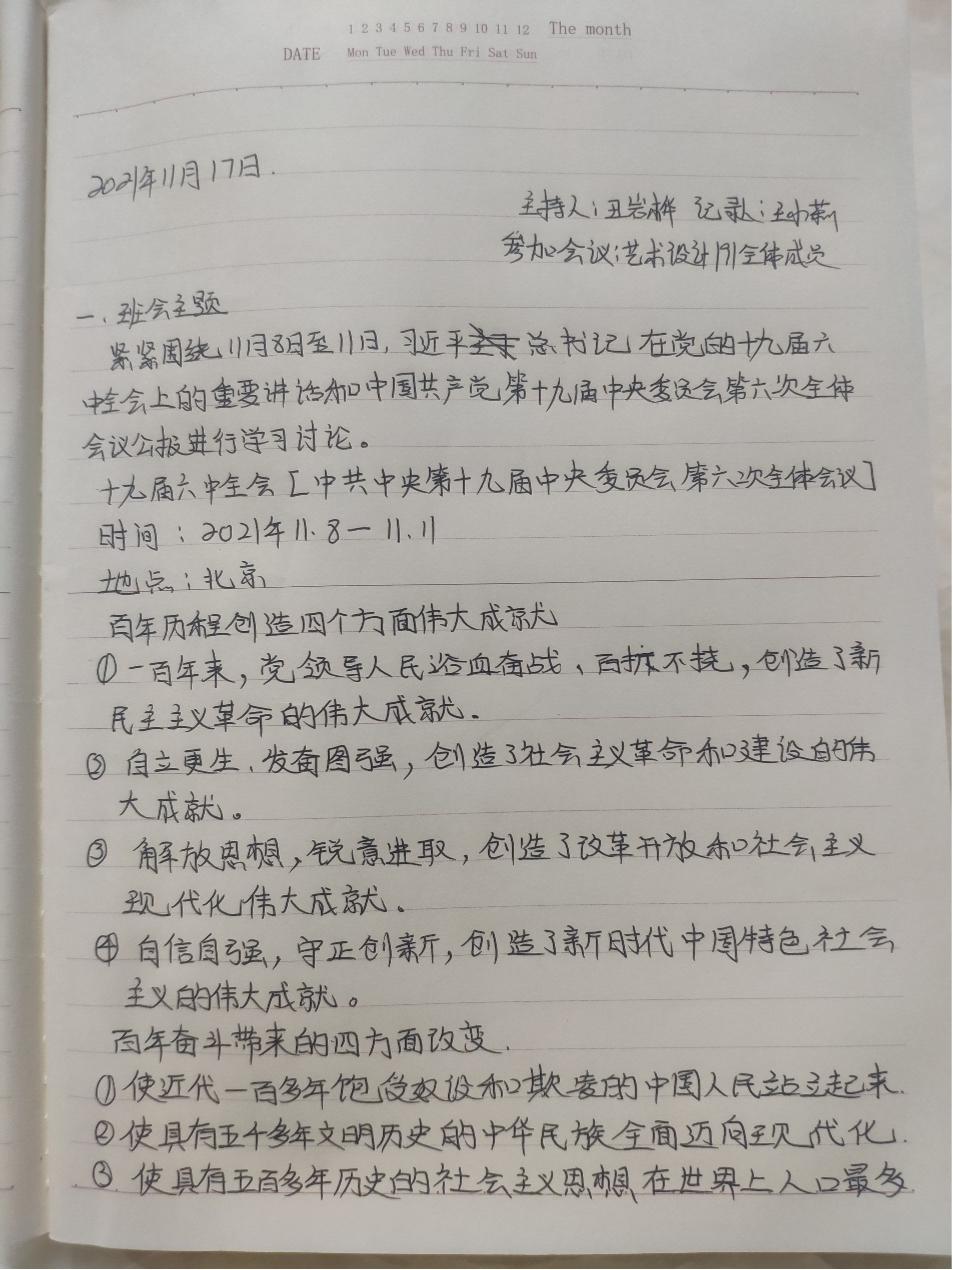 1 2 3 4 5 6 7 8 9 10 11 12 The month
DATE Mon Tue Wed Thu Fri Sat Sun
2021年11月17日.
主持人:丑岩桦 记录:王小莉
参加会议:艺术设计191全体成员
一、班会主题
紧紧围绕11月8日至11日,习近平总书记在党的十九届六
中全会上的重要讲话和中国共产党第十九届中央委员会第六次全体
会议公报进行学习讨论。
十九届六中全会[中共中央第十九届中央委员会第六次全体会议]
时间:2021年11.8—11.11
地点:北京
百年历程创造四个方面伟大成就
①一百年来,党领导人民浴血奋战、百折不挠,创造了新
民主主义革命的伟大成就.
②自立更生、发奋图强,创造了社会主义革命和建设的伟
大成就。
③解放思想,锐意进取,创造了改革开放和社会主义
现代化伟大成就.
④自信自强,守正创新,创造了新时代中国特色社会
主义的伟大成就。
百年奋斗带来的四方面改变.
①使近代一百多年饱受奴役和欺凌的中国人民站立起来.
②使具有五千多年文明历史的中华民族全面迈向现代化.
③使具有五百多年历史的社会主义思想在世界上人口最多